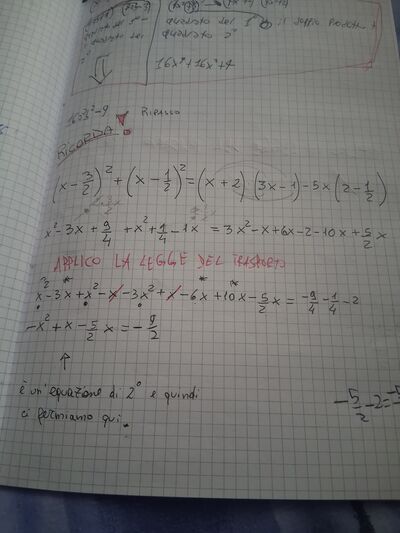 quadrato del 1° il doppio prodotto
quadrato 2°
16x⁴+16x²+4
16x²-9 RIPASSO
RICORDA!
(x-3/2)²+(x-1/2)²=(x+2)(3x-1)-5x(2-1/2)
x²-3x+9/4+x²+1/4-1x=3x²-x+6x-2-10x+5/2x
APPLICO LA LEGGE DEL TRASPORTO
x²-3x+x²-x-3x²+x-6x+10x-5/2x=-9/4-1/4-2
-x²+x-5/2x=-9/2
↑
è un'equazione di 2° e quindi
ci fermiamo qui.
-5/2-2=